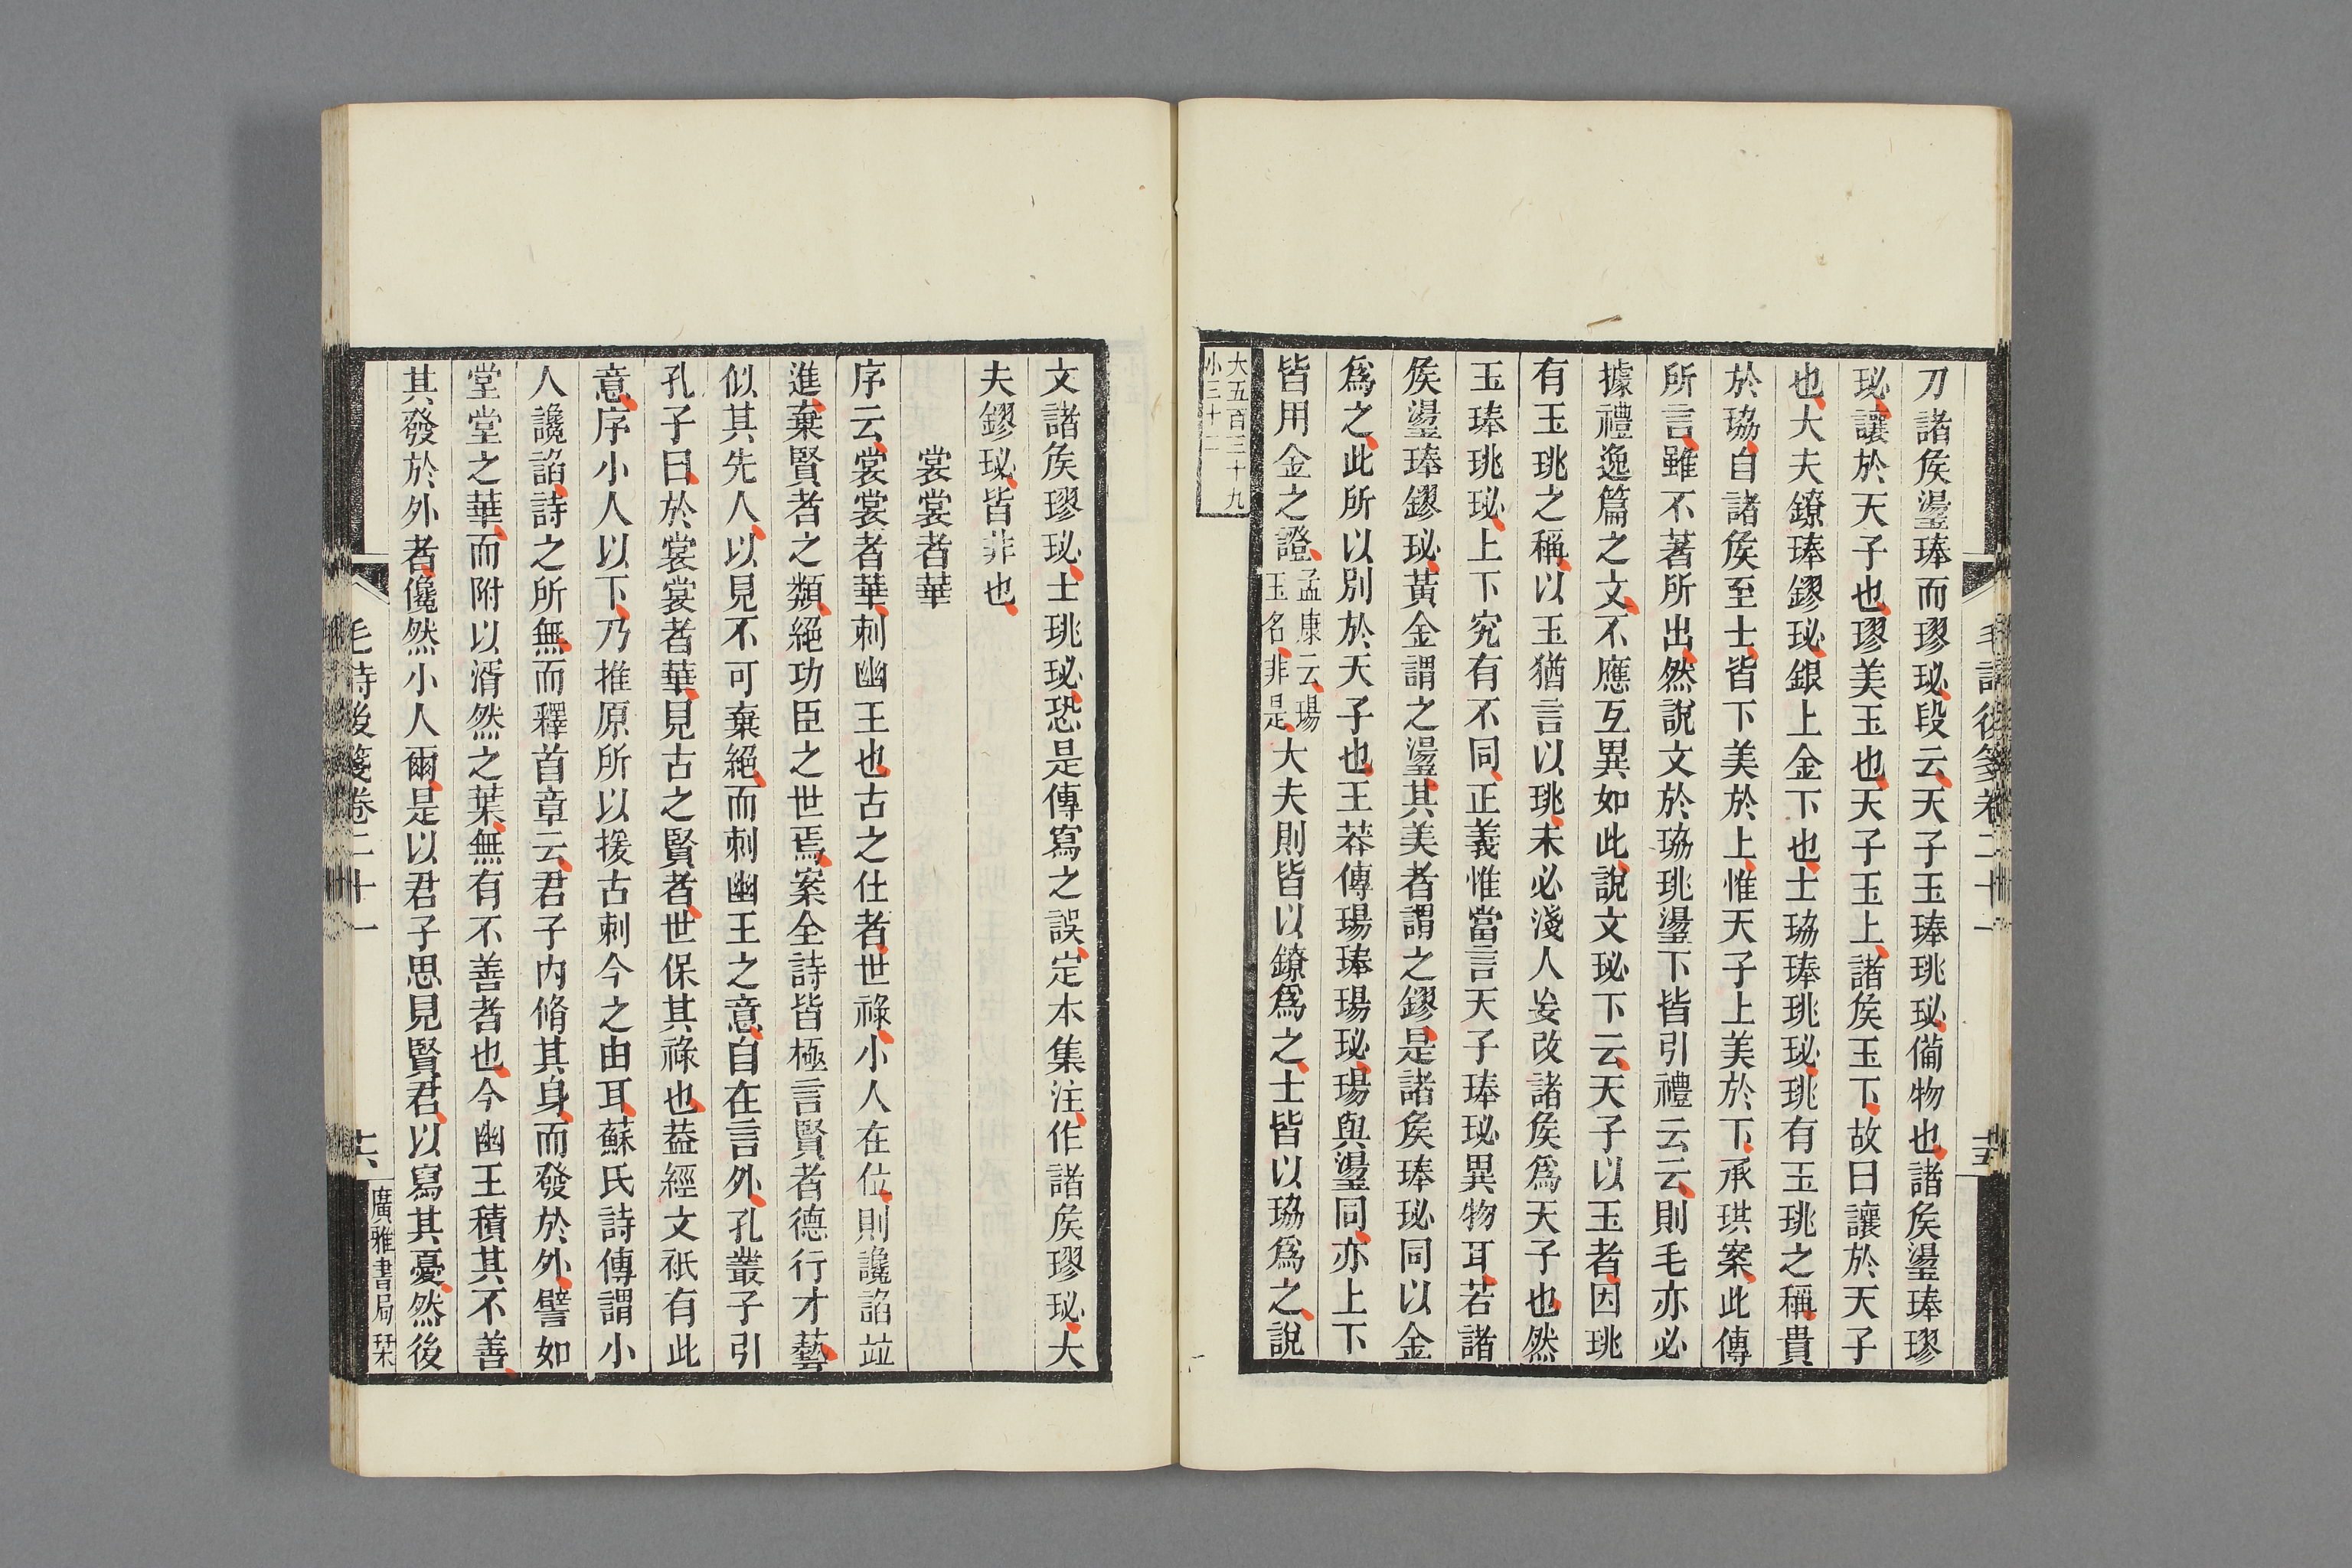 刀諸矦璗琫而璆珌段云天子玉琫珧珌僃物也諸矦璗琫璆
珌讓於天子也璆美玉也天子玉上諸矦玉下故曰讓於天子
也大夫鐐琫鏐珌銀上金下也士珕琫珧珌珧有玉珧之稱貴
於珕自諸矦至士皆下美於上惟天子上美於下承珙案此傳
所言雖不著所出然說文於珕珧璗下皆引禮云云則毛亦必
據禮逸篇之文不應互異如此說文珌下云天子以玉者因珧
有玉珧之稱以玉猶言以珧未必淺人妄改諸矦爲天子也然
玉琫珧珌上下究有不同正義惟當言天子琫珌異物耳若諸
矦璗琫鏐珌黃金謂之璗其美者謂之鏐是諸矦琫珌同以金
爲之此所以別於天子也王莽傳瑒琫瑒珌瑒與璗同亦上下
皆用金之證孟康云瑒玉名非是大夫則皆以鐐爲之士皆以珕爲之說
大五百三十九
小三十二
毛詩後箋卷二十一
十五
文諸矦璆珌士珧珌恐是傳寫之誤定本集注作諸矦璆珌大
夫鏐珌皆非也
裳裳者華
序云裳裳者華刺幽王也古之仕者世祿小人在位則讒諂竝
進棄賢者之類絕功臣之世焉案全詩皆極言賢者德行才藝
似其先人以見不可棄絕而刺幽王之意自在言外孔叢子引
孔子曰於裳裳者華見古之賢者世保其祿也葢經文祇有此
意序小人以下乃推原所以援古刺今之由耳蘇氏詩傳謂小
人讒諂詩之所無而釋首章云君子內脩其身而發於外譬如
堂堂之華而附以湑然之葉無有不善者也今幽王積其不善
其發於外者儳然小人爾是以君子思見賢君以寫其憂然後
毛詩後箋卷二十一
十六
廣雅書局栞